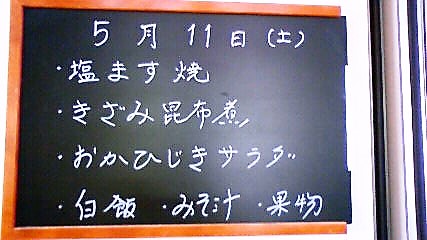 5月11日(土)
・塩ます焼
・きざみ昆布煮
・おかひじきサラダ
・白飯 ・みそ汁 ・果物